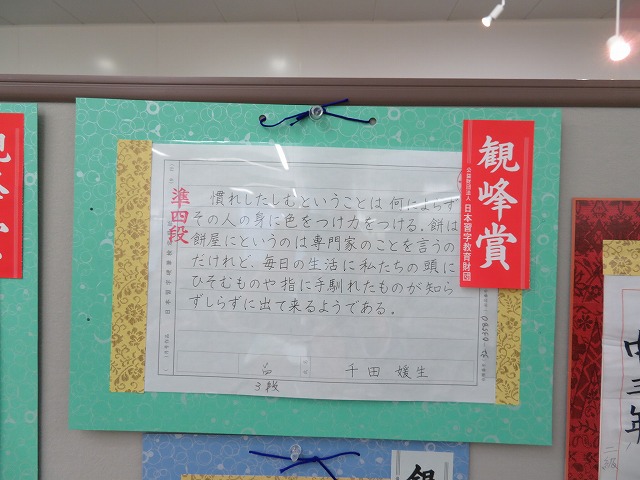 観峰賞
公益財団法人 日本習字教育財団
準四段
慣れしたしむということは何によらず
その人の身に色をつけ力をつける。餅は
餅屋にというのは専門家のことを言うの
だけれど、毎日の生活に私たちの頭に
ひそむものや指に手馴れたものが知ら
ずしらずに出て来るようである。
3段
千田 媛生
中三年
二級
銀